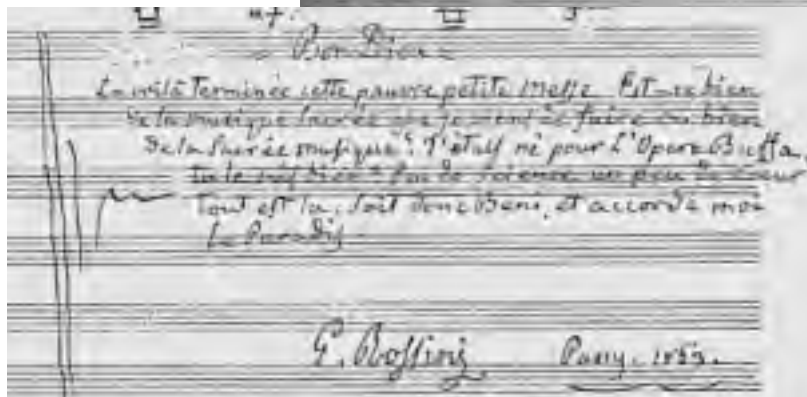 Bon Dieu
La voilà terminée cette pauvre petite Messe. Est-ce bien
de la musique Sacrée que je viens de faire ou bien
de la Sacrée musique? J'étais né pour l'Opera Buffa,
tu le sais bien! Peu de science un peu de cœur
tout est là, Soit donc Beni, et accorde moi
Le Paradis
G. Rossini. Passy. 1863.